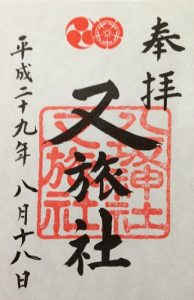 奉拝
又旅社
八坂神社
又旅社
平成二十九年 八月十八日